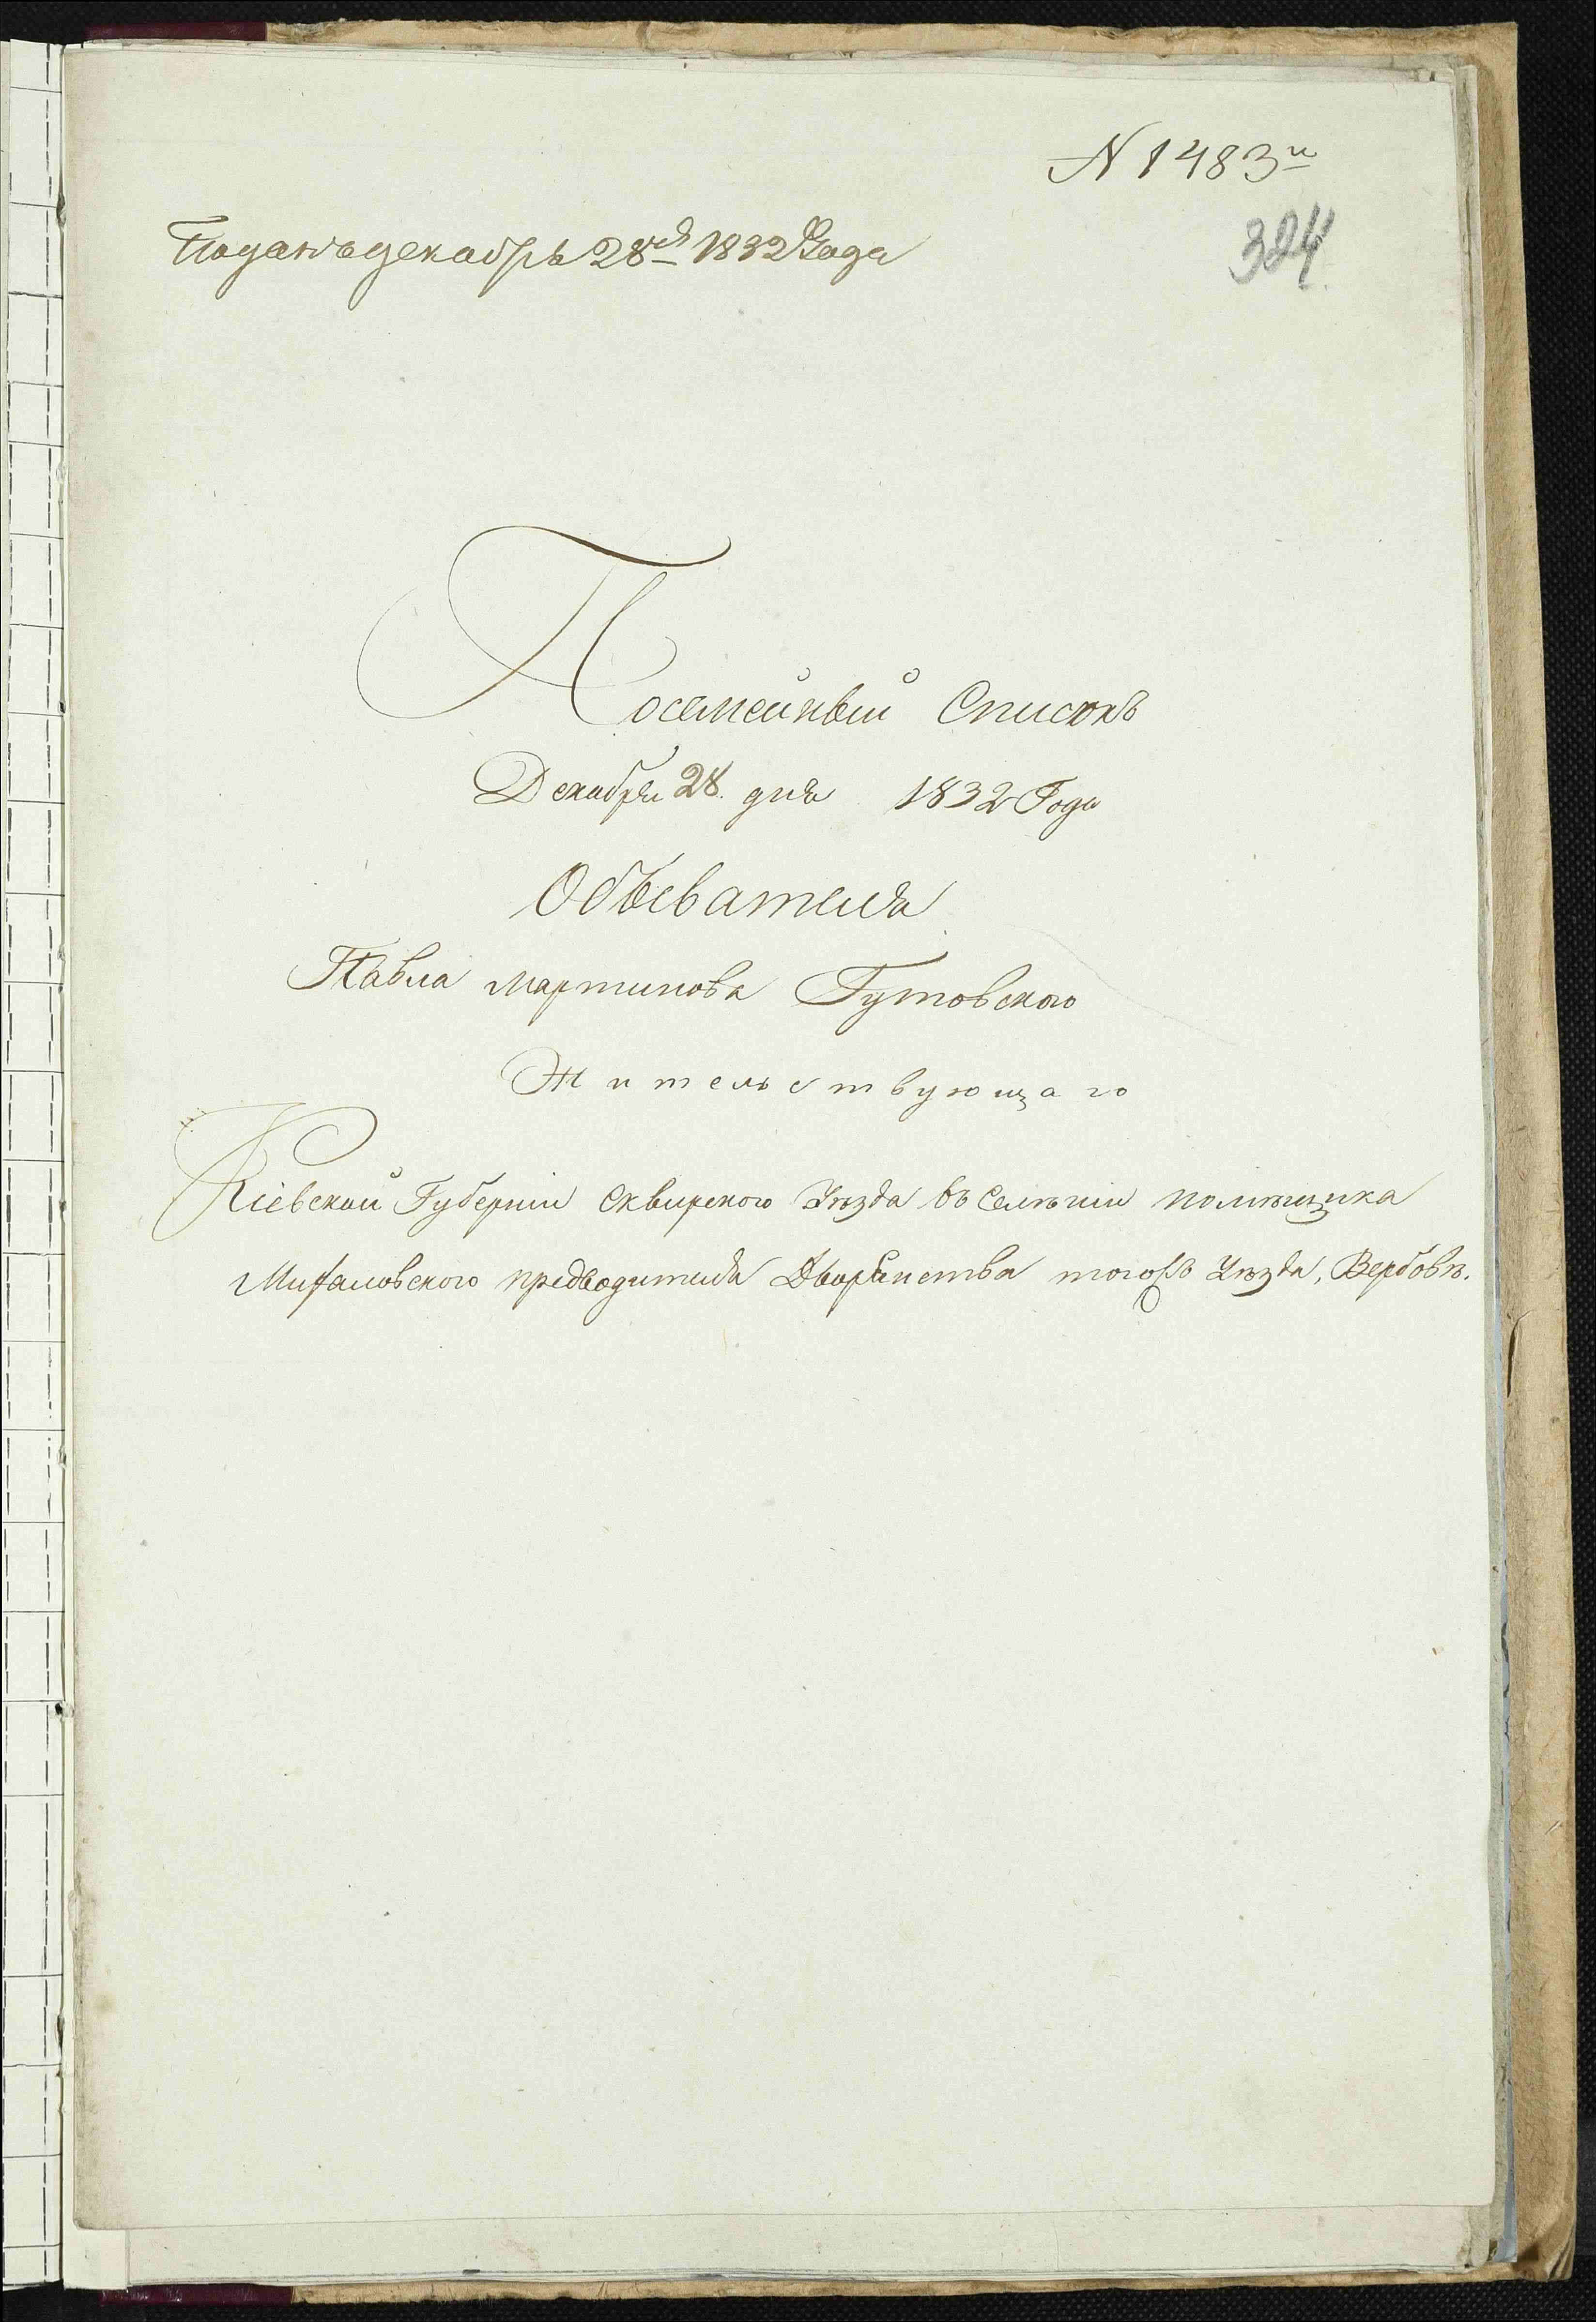 N 1483й
Поданъ декабръ 28го 1832 Года
324
Посемейный Списокъ
Декабря 28 дня 1832 Года
Обывателя
Павла Мартинова Гутовского
Жительствующаго
Кіевской Губерніи Сквирского Уѣзда въ Селѣніи помѣщика
Михаловского предводителя Дворянства тогожъ Уѣзда, Вербовѣ.